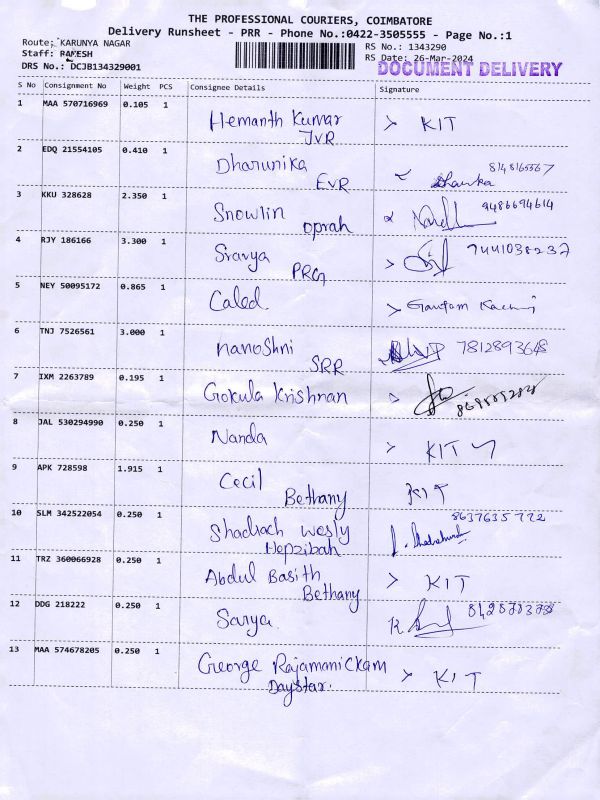 THE PROFESSIONAL COURIERS, COIMBATORE
Delivery Runsheet - PRR - Phone No.:0422-3505555 - Page No.:1
Route; KARUNYA NAGAR
RS No.: 1343290
Staff: RAMESH
RS Date: 26-Mar-2024
DRS No.: DCJB134329001
DOCUMENT DELIVERY
S No Consignment No Weight PCS Consignee Details Signature
1 MAA 570716969 0.105 1 Hemanth Kumar > KIT
JVR
2 EDQ 21554105 0.410 1 Dharunika
EVR
3 KKU 328628 2.350 1 Snowlin 9486694614
oprah
4 RJY 186166 3.300 1 Sravya > 7441038237
PRG
5 NEY 50095172 0.865 1 Caled > Gautam
6 TNJ 7526561 3.000 1 nanoshni 7812893648
SRR
7 IXM 2263789 0.195 1 Gokula Krishnan >
8 JAL 530294990 0.250 1 Nanda > KIT
9 APK 728598 1.915 1 Cecil KIT
Bethany
10 SLM 342522054 0.250 1 Shadrach wesly 8637635772
Hepzibah
11 TRZ 360066928 0.250 1 Abdul Basith > KIT
Bethany
12 DDG 218222 0.250 1 Sarya
13 MAA 574678205 0.250 1 George Rajamanickam > KIT
Daystar.